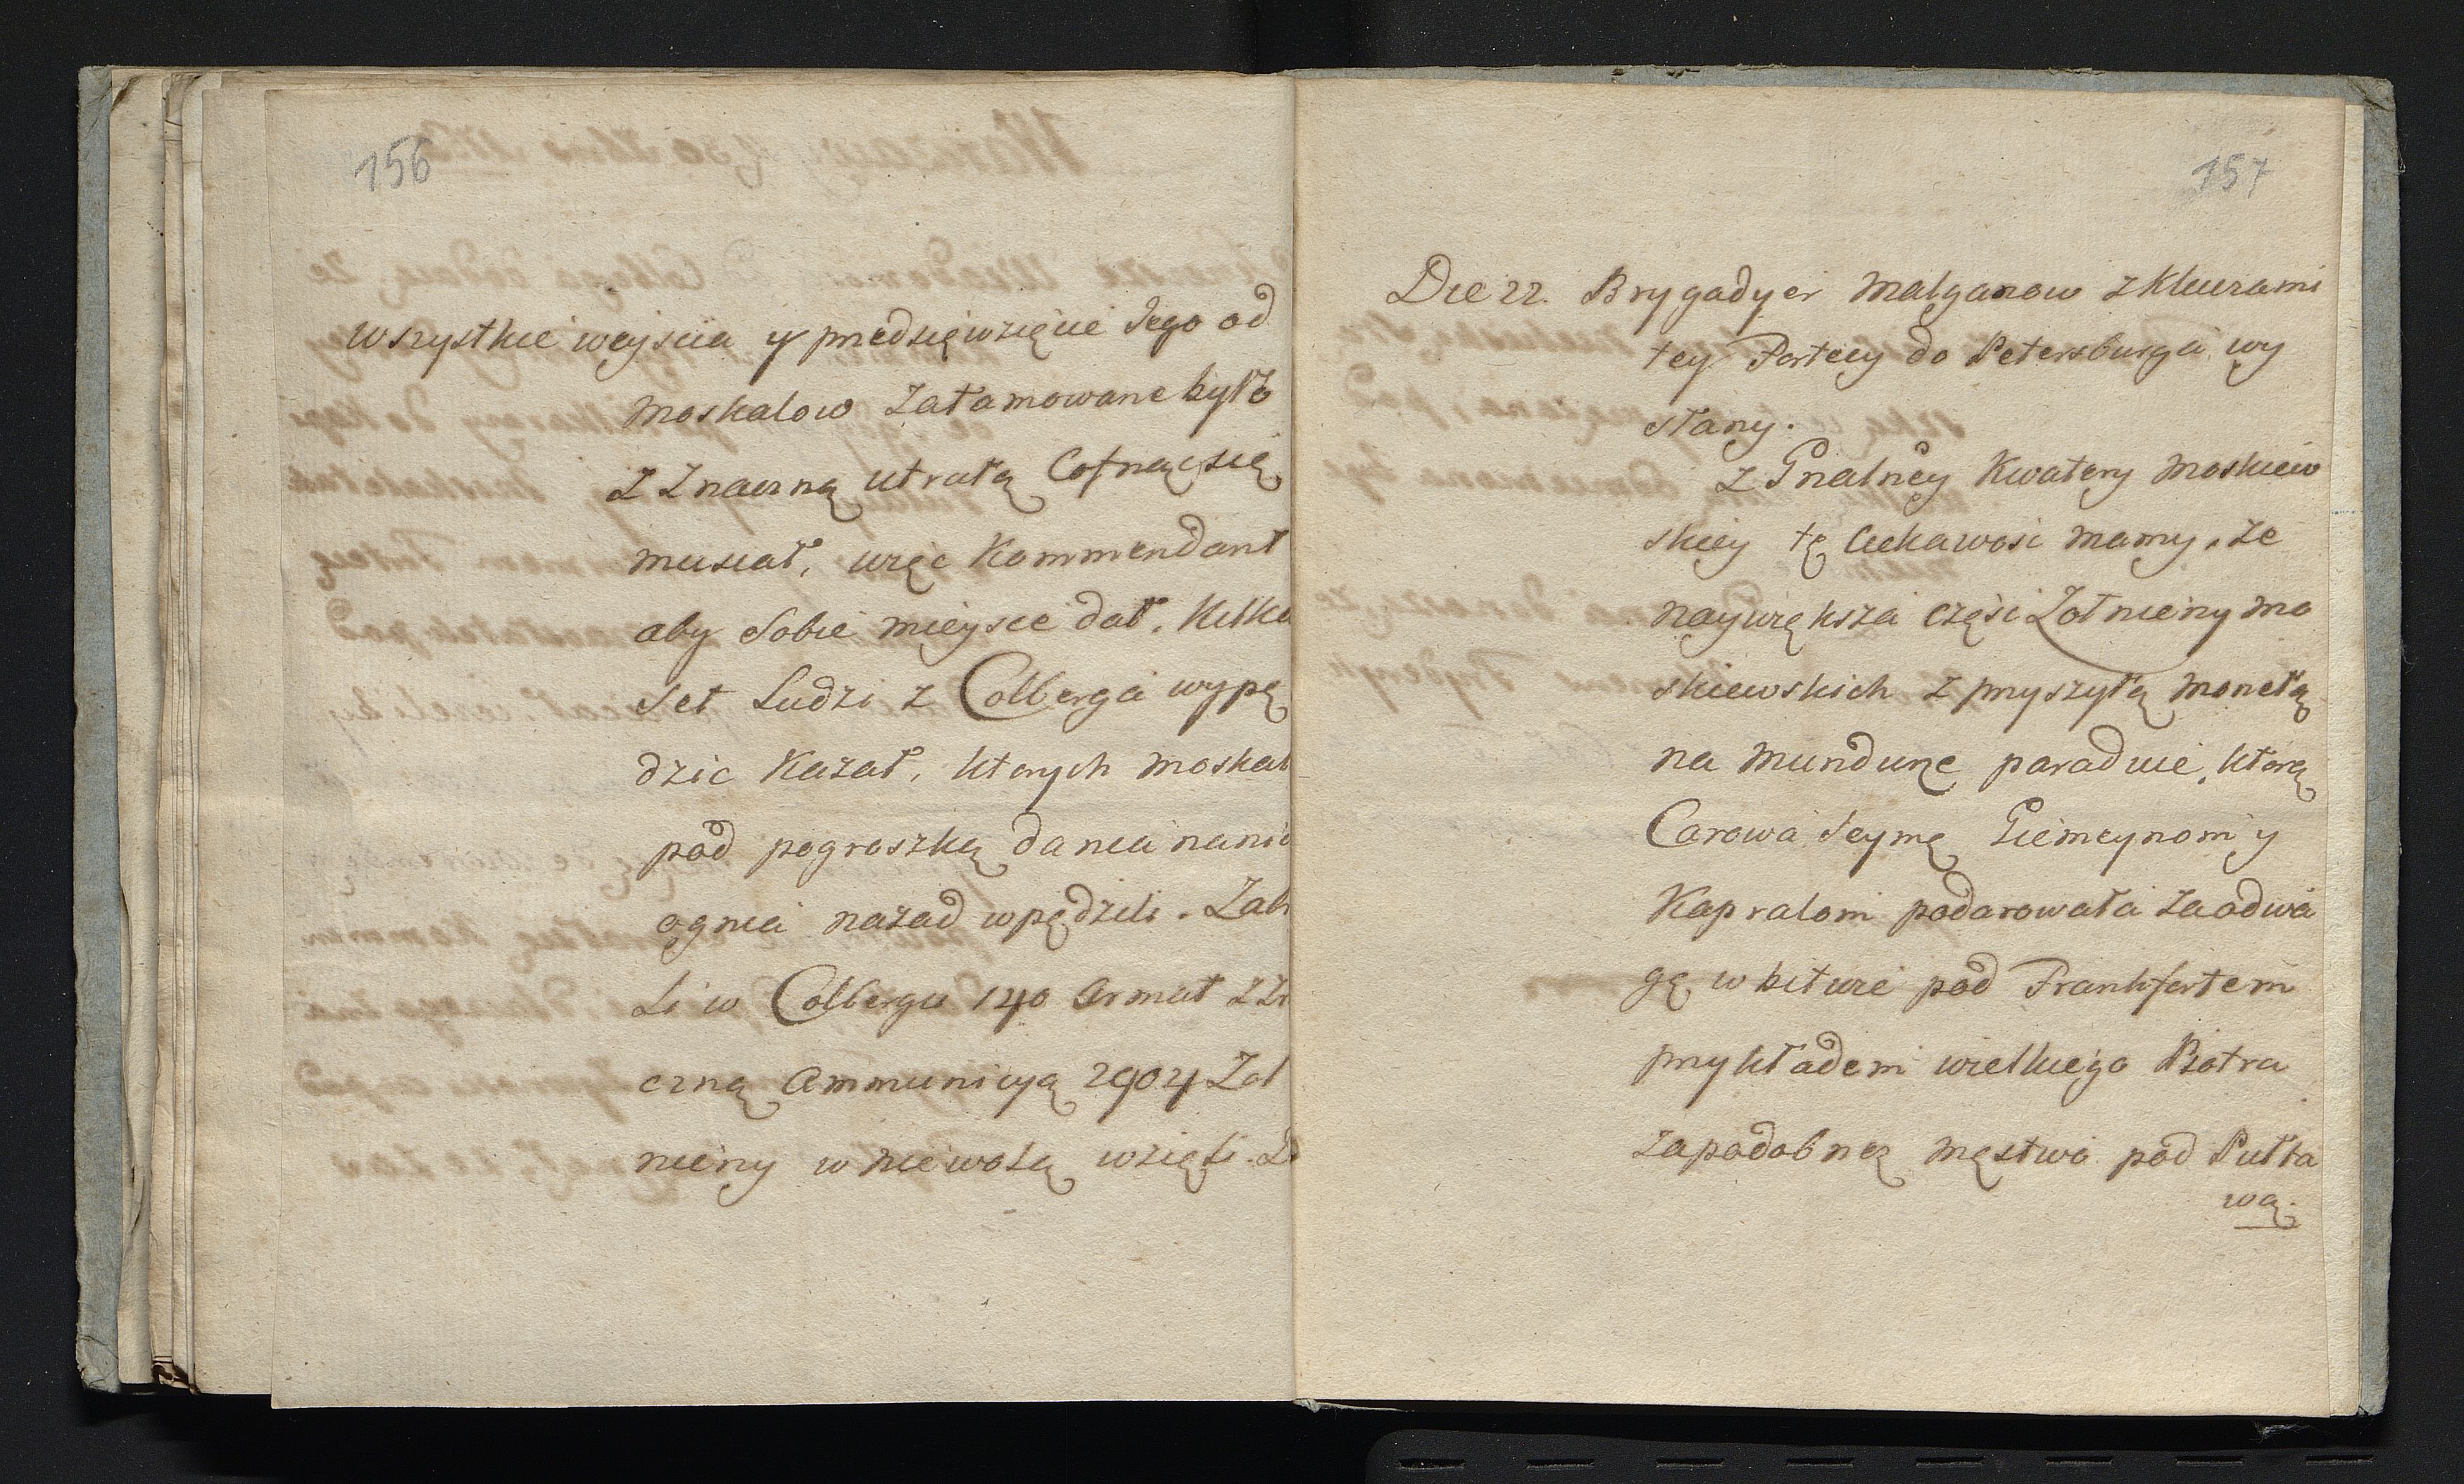 156
wszystkie wejscia y predsięwzięcie Jego od
moskalow zatamowane było
z znaczną utratą Cofnąc się
musiał, więc Kommendant
aby Sobie mieysce dał, Kilku
Set Ludzi z Colberga wypę
dzic Kazał, ktorych moskal
pod pogroszką dania nanich
ognia nazad wpędzili. Zab
Li w Colbergu 140 Armat z
czną Ammunicyą 2904 Zoł
nierzy w niewolą wzięli.
157
Die 22. Brygadyer Malganow z Kluczami
tey Fortecy do Petersburga wy
słany.
z Gnalney Kwatery Moskiew
skiey tę Ciekawosc mamy, że
naywiększa częsc Zołnierzy mo
skiewskich z przyszytą monetą
na Mundurze paraduie, ktorą
Carowa Jeymę Giemeynom y
Kapralom podarowała za odwa
gę w bitwie pod Frankfortem
przykładem wielkiego Piotra
za podobnez męstwo pod Pułta
wą.